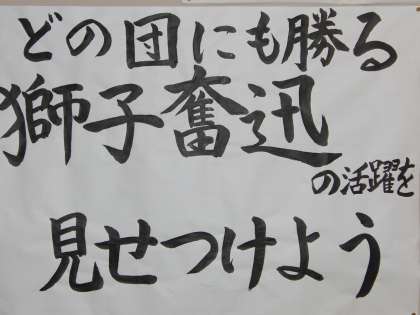 どの団にも勝る
獅子奮迅
の活躍を
見せつけよう